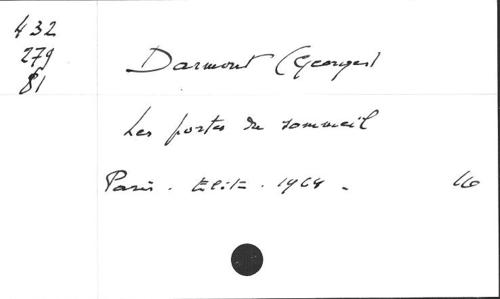 432
279
81
Darmont (Georges)
Les portes du sommeil
Paris. Elite. 1964.